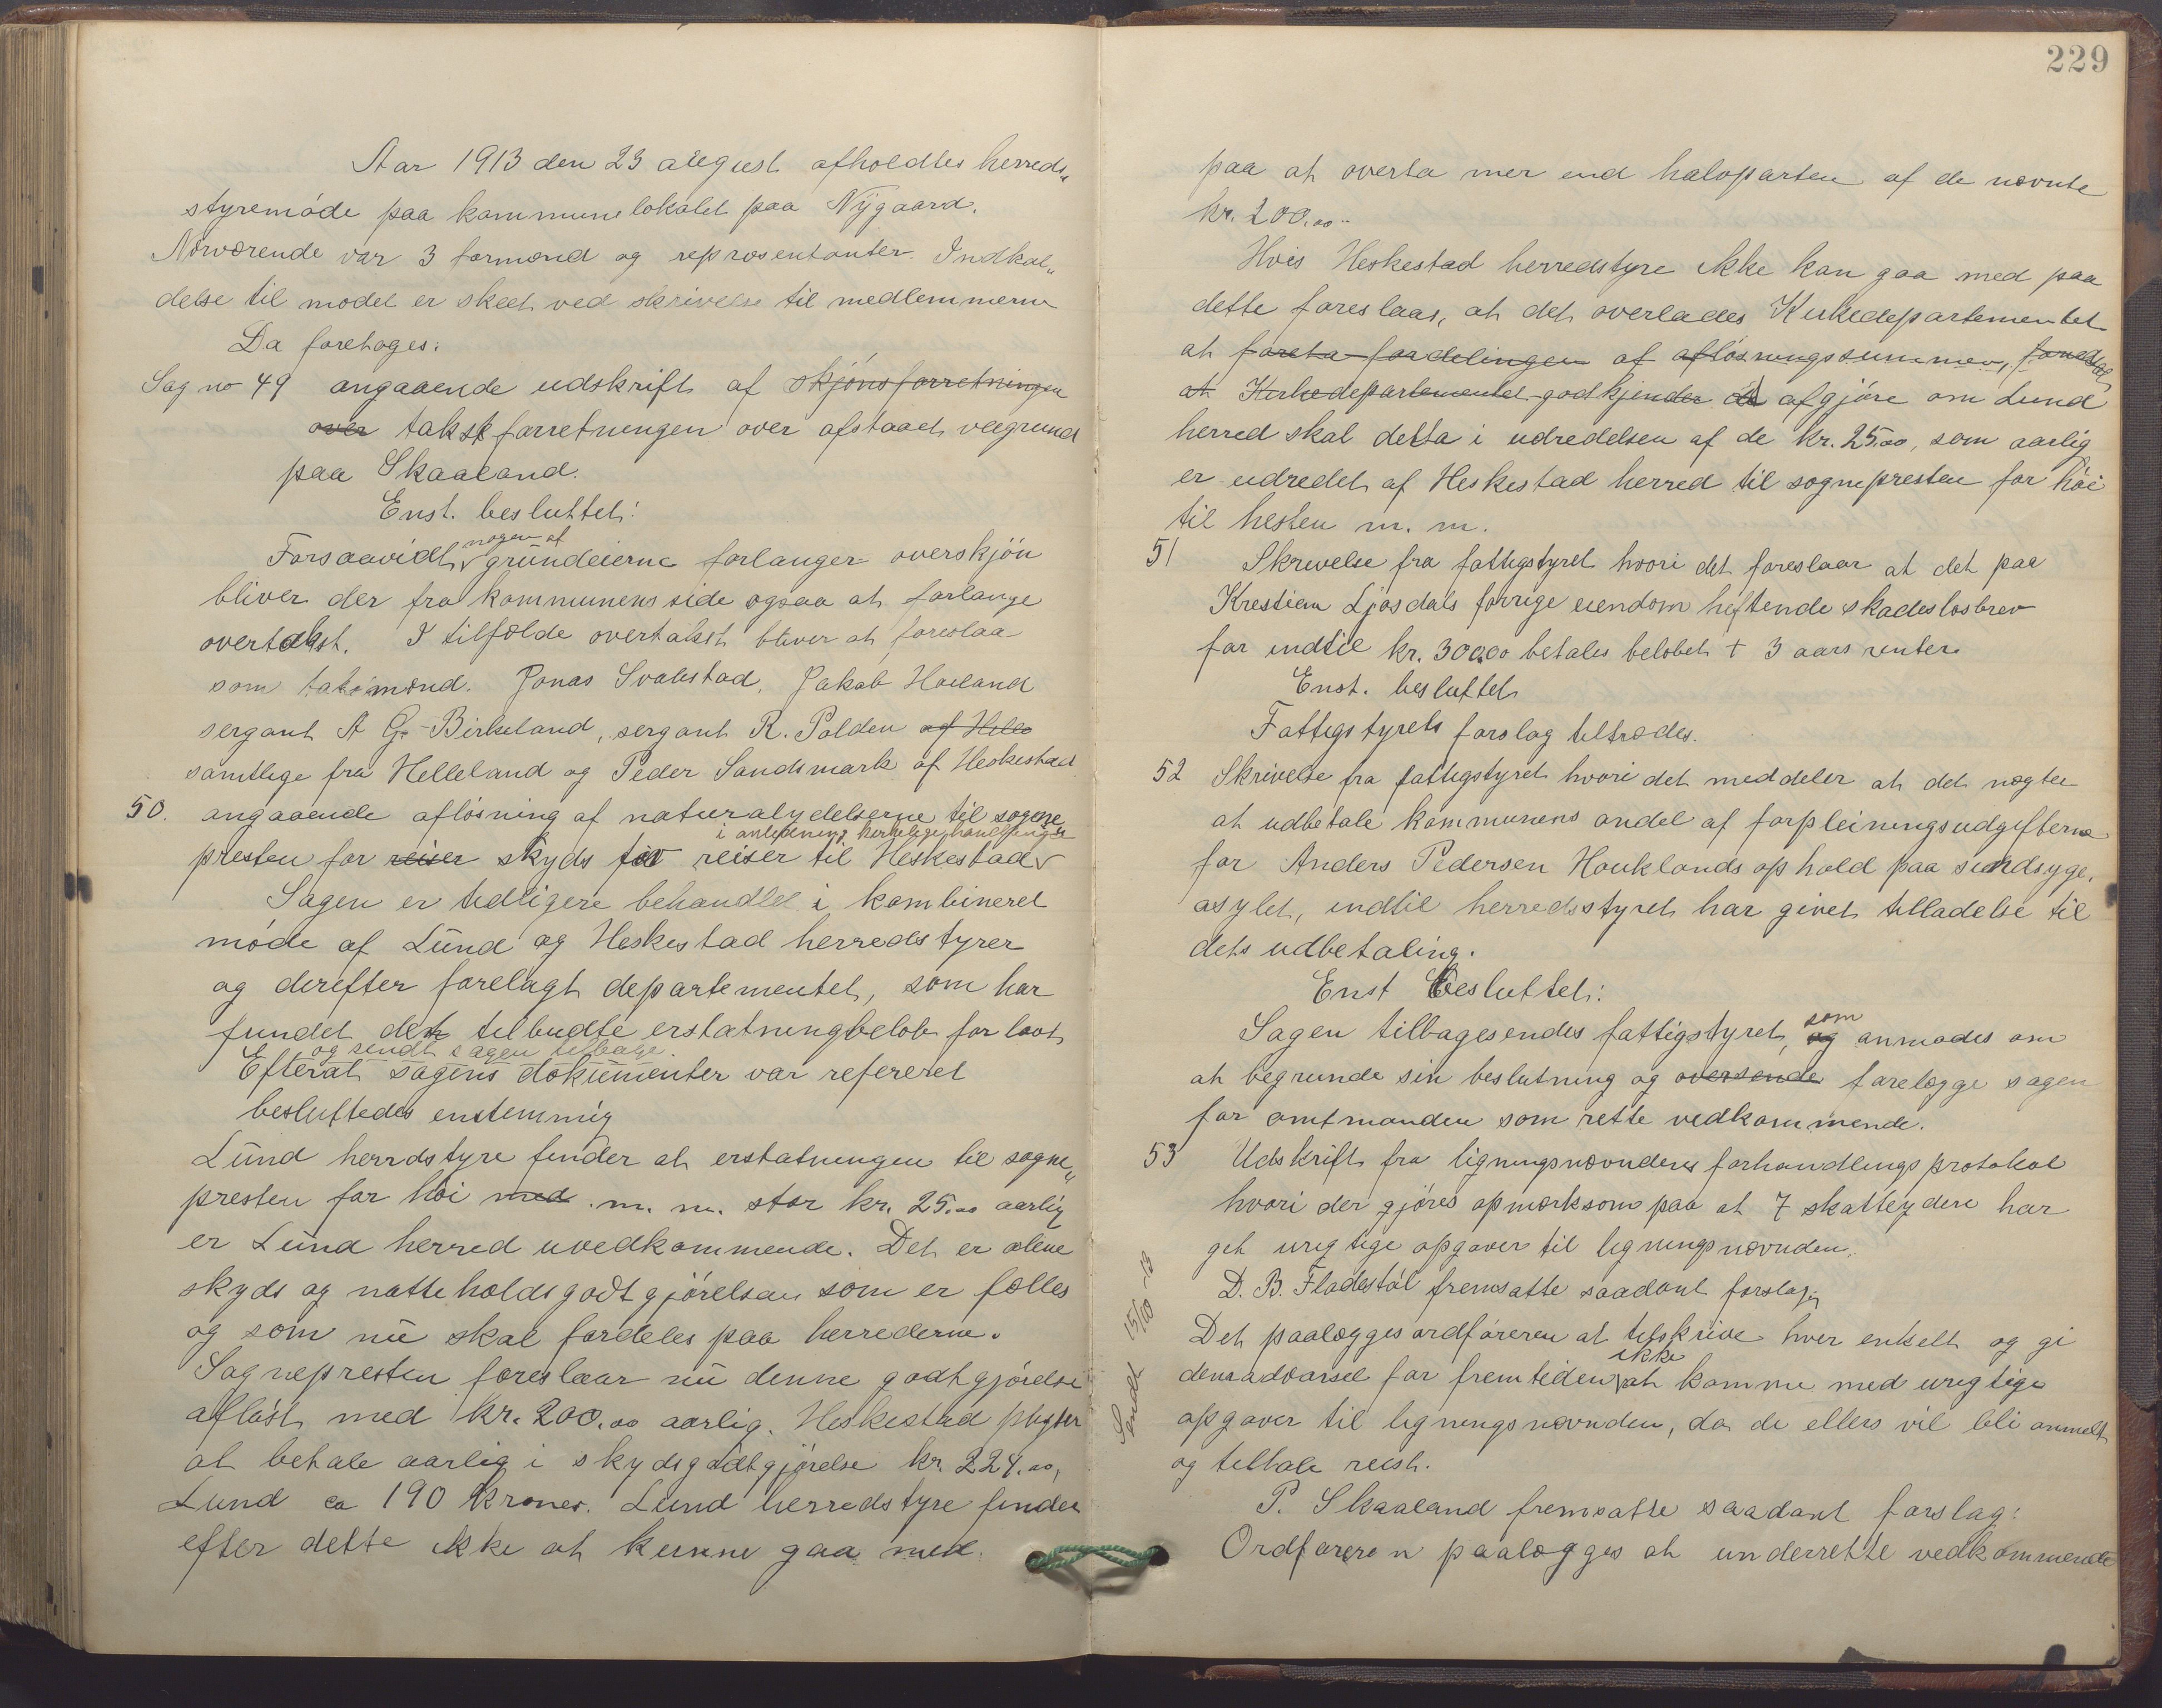 Aar 1913 den 23 august afholdtes herreds„
styremöde paa kommunelokalet paa Nÿgaard.
Nærværende var 3 formænd og repræsentanter. Indkal„
delse til mødet er skeet ved skrivelse til medlemmerne
Da foretoges:
Sag no 49 angaaende udskrift af skjönsforretningen
over takstforretningen over afstaaet veigrund
paa Skaaland.
Enst. besluttet:
nogen af
Forsaavidt grundeierne forlanger overskjön
bliver der fra kommunens side ogsaa at forlange
overtakst. I tilfælde overtakst bliver at foreslaa
som takstmænd. Jonas Svalestad, Jakob Hoiland
sergant A G. Birkeland, sergant R. Polden af Helle
samtlige fra Helleland og Peder Sandsmark af Heskestad
50. angaaende aflösning af naturalydelserne til sogne
i anledning kirkelige handlinger
presten for reiser skyds for reiser til Heskestad
Sagen er tidligere behandlet i kombineret
möde af Lund og Heskestad herredstyrer
og derefter forelagt departementet, som har
fundet det tilbudte erstatningbelöb for lavt
og sendt sagen tilbage.
Efterat sagens dokumenter var refereret
besluttedes enstemmig
Lund herrdstyre finder at erstatningen til sogne„
presten for höi med m. m. stor kr. 25.00 aarlig
er Lund herred uvedkommende. Det er alene
skyds og natteholdsgodtgjörelsen som er fælles
og som nu skal fordeles paa herrederne.
Sognepresten foreslaar nu denne godtgjörelse
aflöst med kr. 200.00 aarlig. Heskestad pligter
at betale aarlig i skydsgodtgjörelse kr. 224.00,
Lund ca 190 kroner. Lund herredstyre finder
efter dette ikke at kunne gaa med
229
paa at overta mer end halvparten af de nævnte
kr. 200.00
Hvis Heskestad herredstyre ikke kan gaa med paa
dette foreslaas, at det overlades Kirkedepartementet
at foreta fordelingen af aflösningssummen, forudsat
at Kirkedepartementet godkjender afgjöre om Lund
herred skal delta i udredelsen af de kr. 25.00, som aarlig
er udredet af Heskestad herred til sognepresten for höi
til hesten m. m.
51 Skrivelse fra fattigstyret hvori det foreslaar at det paa
Kristian Ljosdals forrige eiendom heftende skadeslosbrev
for indtil kr. 300.00 betales belöbet + 3 aars renter.
Enst. besluttet
Fattigstyrets forslag tiltrædes.
52 Skrivelse fra fattigstyret hvori det meddeler at det nægter
at udbetale kommunens andel af forpleiningsudgifterne
for Anders Pedersen Hauklands ophold paa sindsyge,
asylet, indtil herredsstyret har givet tilladelse til
dets udbetaling.
Enst besluttet:
som
Sagen tilbagesendes fattigstyret, og anmodes om
at begrunde sin beslutning og oversende forelægge sagen
for amtmanden som rette vedkommende.
53 Udskrift fra ligningsnævndens forhandlingsprotokol
hvori der gjöres opmærksom paa at 7 skatteydere har
git urigtige opgaver til ligningsnævnden.
D. B. Fladestöl fremsatte saadant forslag:
Det paalægges ordföreren at tilskrive hver enkelt og gi
ikke
dem advarsel for fremtiden at komme med urigtige
opgaver til ligningsnævnden, da de ellers vil bli anmeldt
og tiltale reist.
Sendt 15/10 - 13
P. Skaaland fremsatte saadant forslag:
Ordföreren paalægges at underrette vedkommende